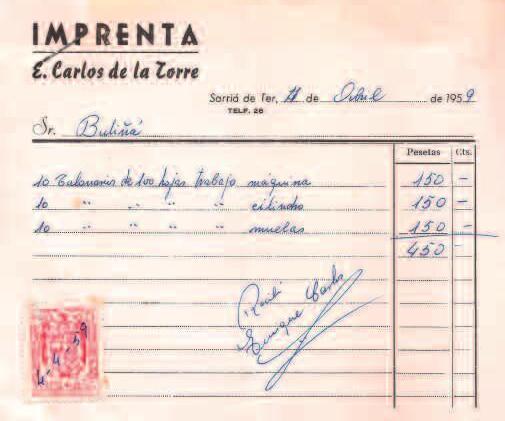 IMPRENTA
E. Carlos de la Torre
Sarriá de Ter, 4 de Abril de 1959
TELF. 26
Sr. Butiñá
Pesetas Cts.
10 Talonarios de 100 hojas trabajo máquina 150 -
10 " " " " cilindro 150 -
10 " " " " muelas 150 -
450 -
Recibí
Enrique Carlos
4-4-59